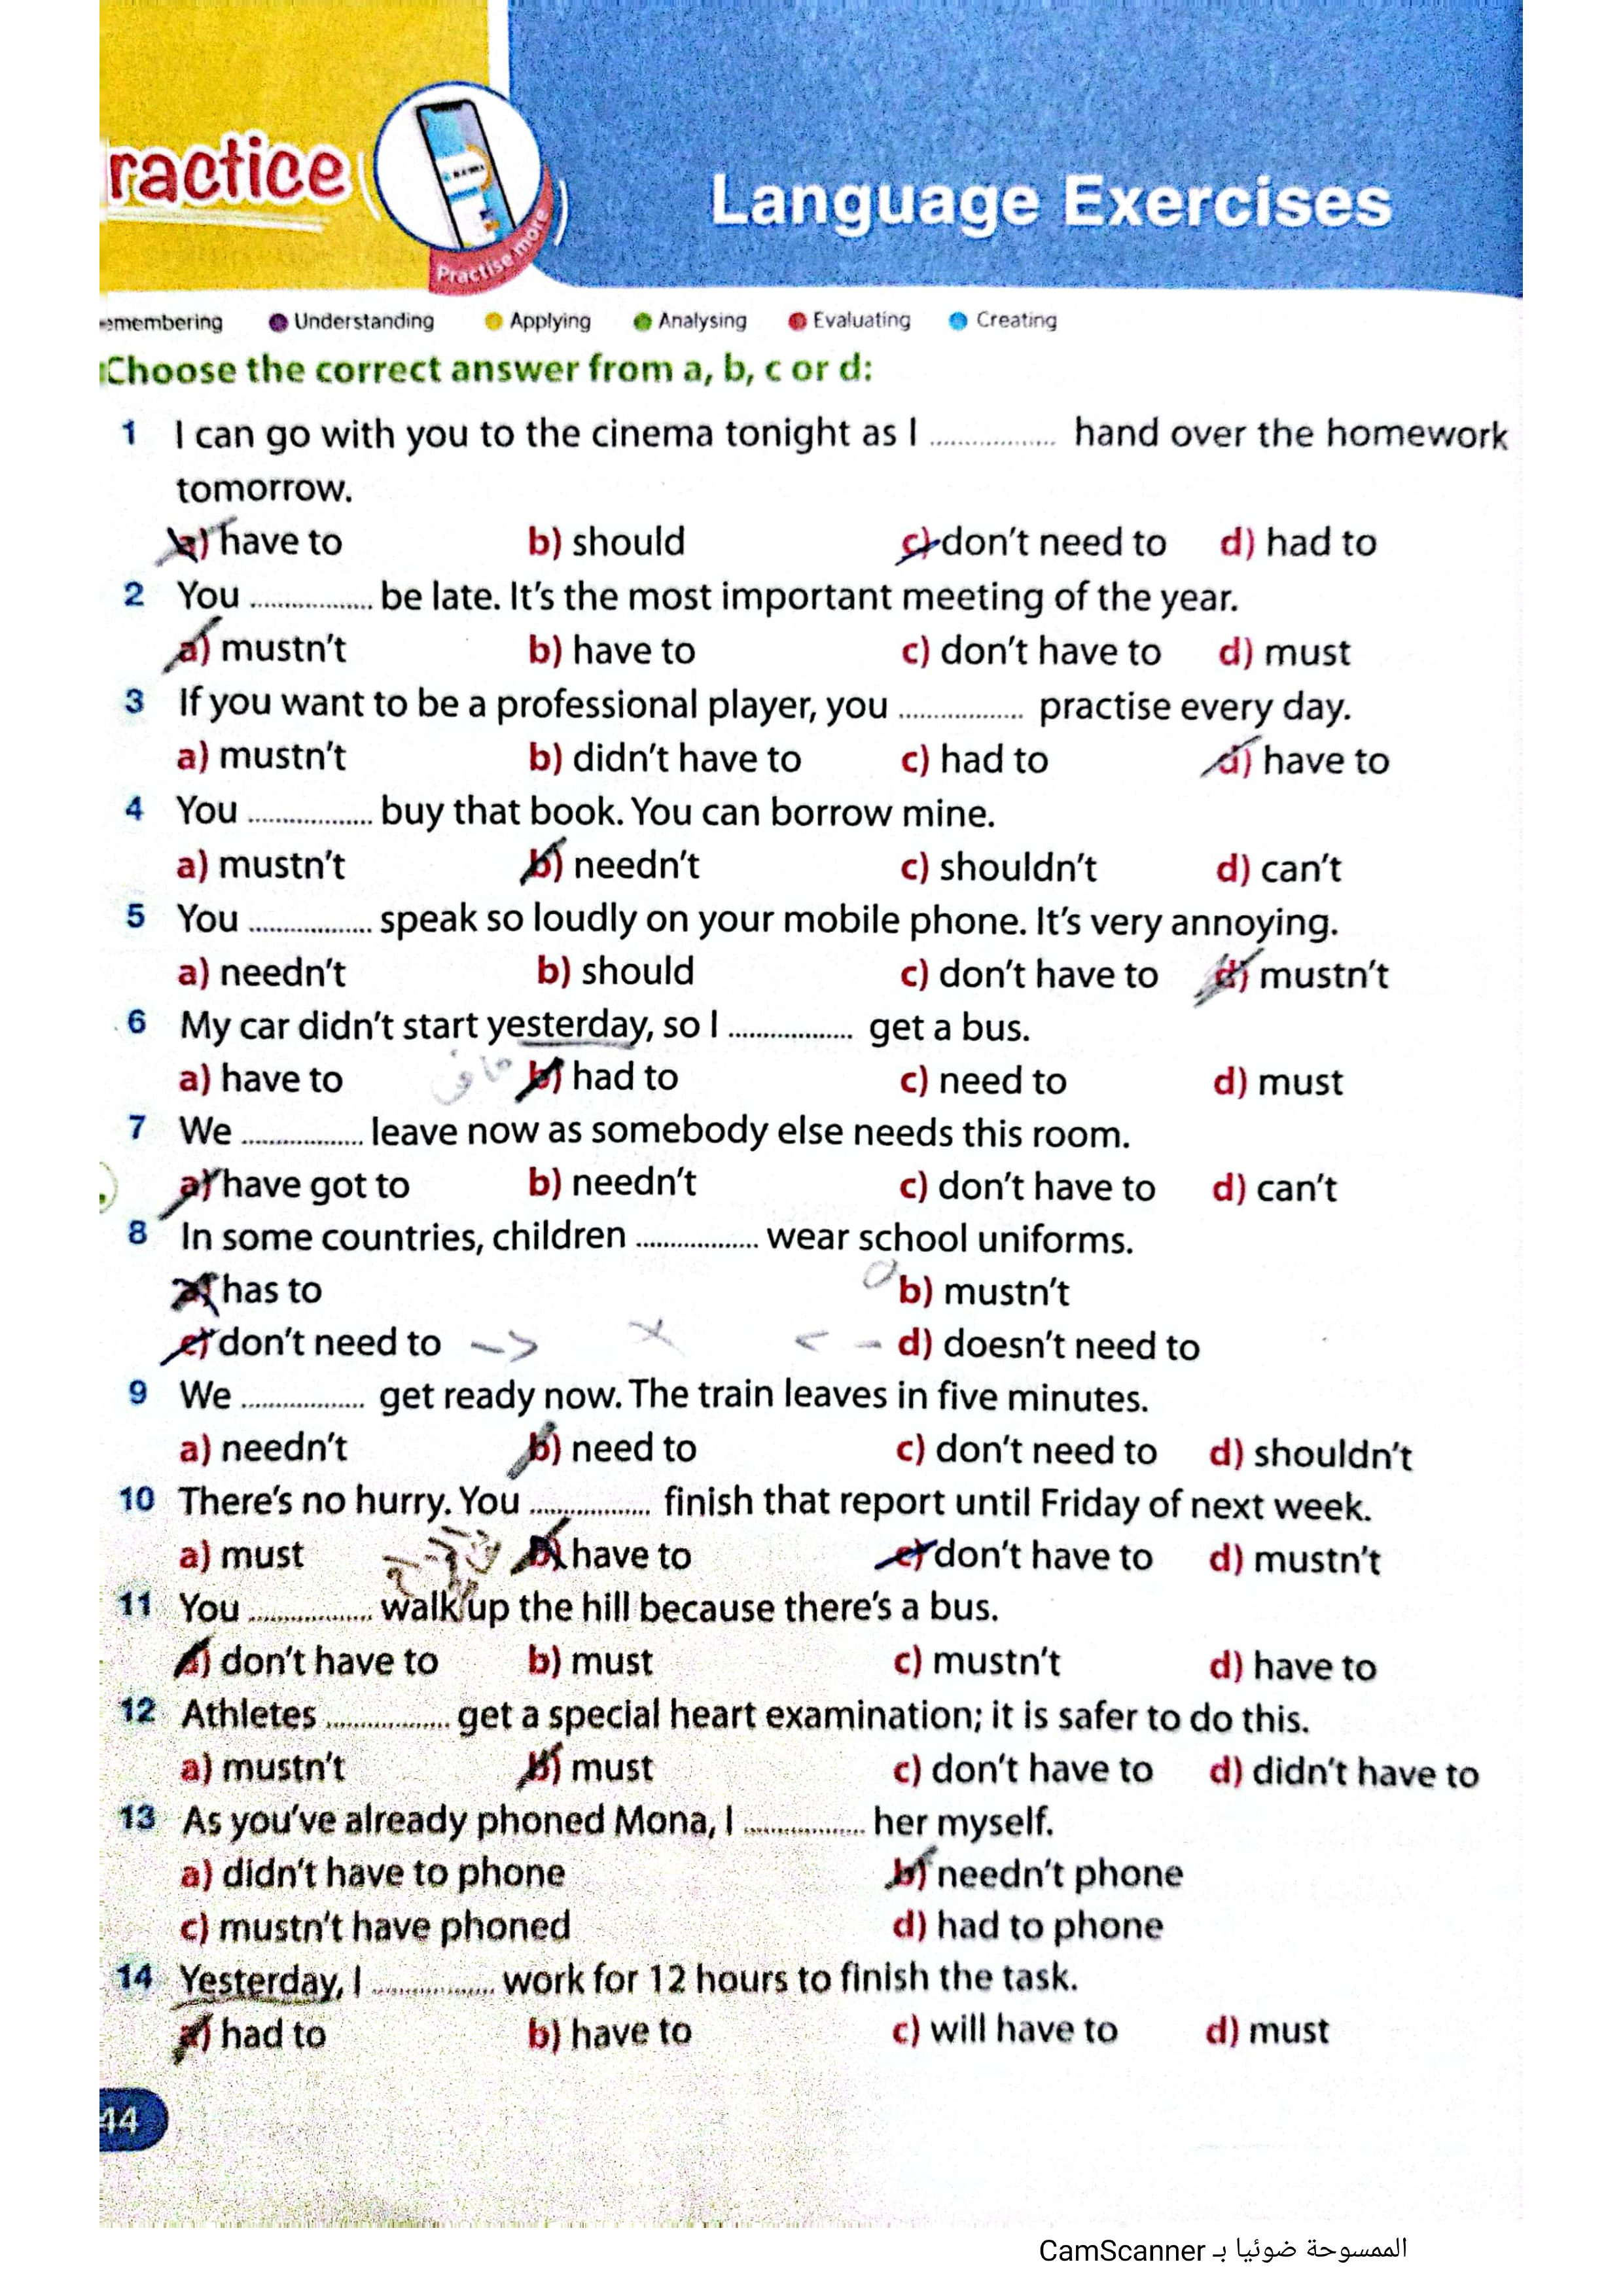 ractice
Practise more
Language Exercises
emembering Understanding Applying Analysing Evaluating Creating
Choose the correct answer from a, b, c or d:
1 I can go with you to the cinema tonight as I ................. hand over the homework
tomorrow.
a) have to b) should c) don't need to d) had to
2 You ................. be late. It's the most important meeting of the year.
a) mustn't b) have to c) don't have to d) must
3 If you want to be a professional player, you ................. practise every day.
a) mustn't b) didn't have to c) had to d) have to
4 You ................. buy that book. You can borrow mine.
a) mustn't b) needn't c) shouldn't d) can't
5 You ................. speak so loudly on your mobile phone. It's very annoying.
a) needn't b) should c) don't have to d) mustn't
6 My car didn't start yesterday, so I ................. get a bus.
a) have to b) had to c) need to d) must
7 We ................. leave now as somebody else needs this room.
a) have got to b) needn't c) don't have to d) can't
8 In some countries, children ................. wear school uniforms.
a) has to b) mustn't
c) don't need to d) doesn't need to
9 We ................. get ready now. The train leaves in five minutes.
a) needn't b) need to c) don't need to d) shouldn't
10 There's no hurry. You ................. finish that report until Friday of next week.
a) must b) have to c) don't have to d) mustn't
11 You ................. walk up the hill because there's a bus.
a) don't have to b) must c) mustn't d) have to
12 Athletes ................. get a special heart examination; it is safer to do this.
a) mustn't b) must c) don't have to d) didn't have to
13 As you've already phoned Mona, I ................. her myself.
a) didn't have to phone b) needn't phone
c) mustn't have phoned d) had to phone
14 Yesterday, I ................. work for 12 hours to finish the task.
a) had to b) have to c) will have to d) must
44
الممسوحة ضوئيا بـ CamScanner